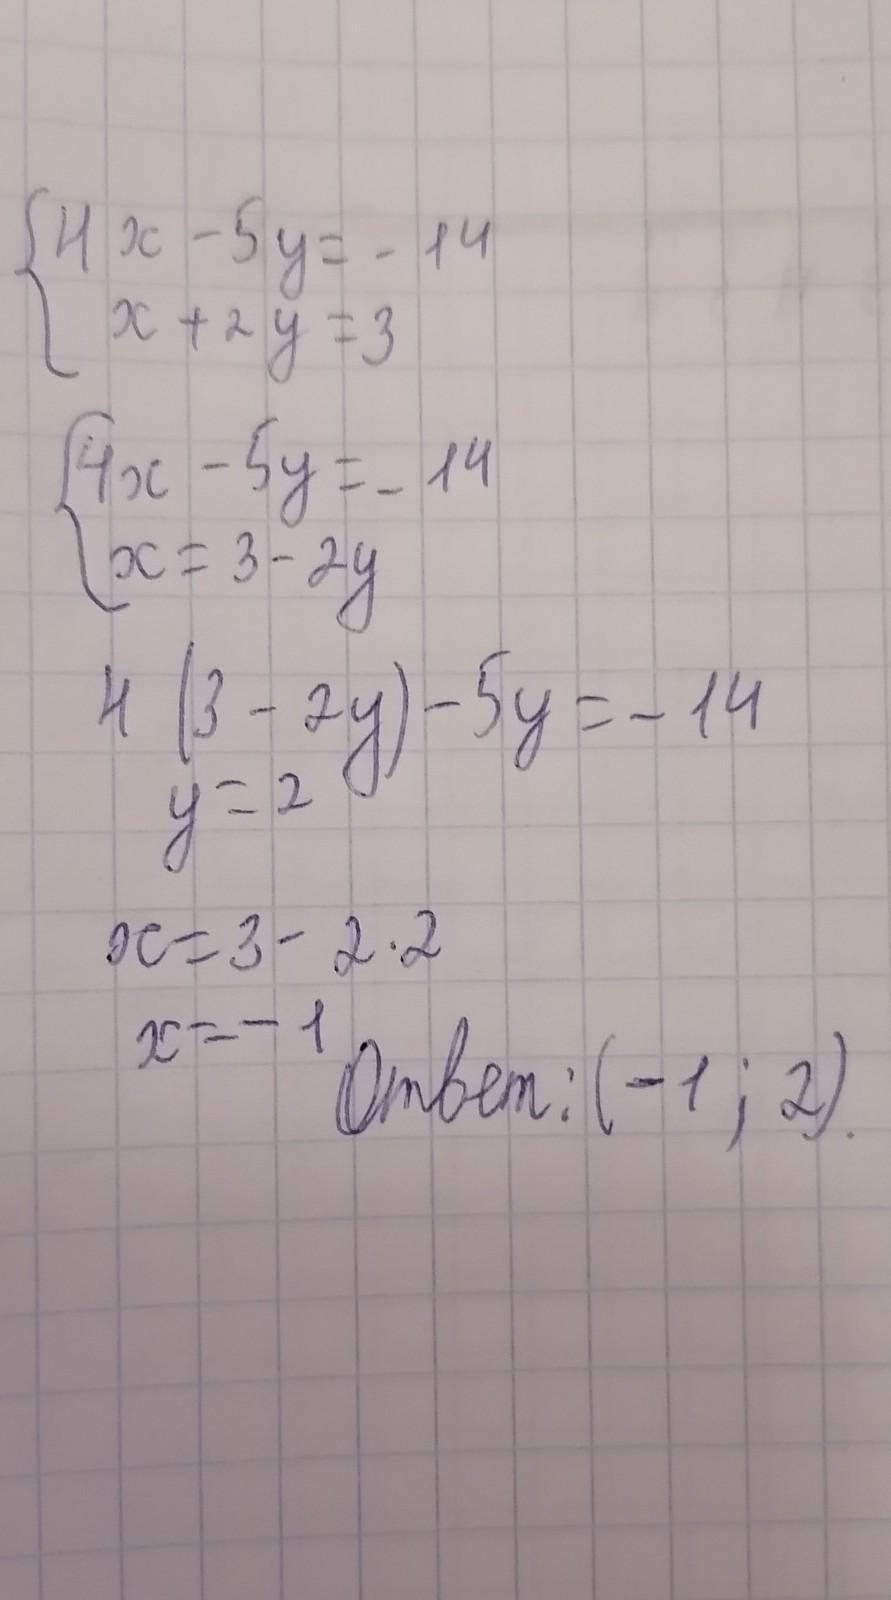 {4x - 5y = - 14
x + 2y = 3
{4x - 5y = - 14
x = 3 - 2y
4 (3 - 2y) - 5y = - 14
y = 2
x = 3 - 2 · 2
x = - 1
Ответ: (-1 ; 2).